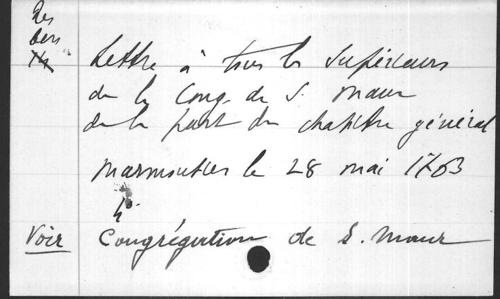 Lettre à tous les Supérieurs
de la Cong. de S. Maur
de la part du chapitre général
Marmoutier le 28 mai 1763
4°
Voir Congrégation de S. Maur